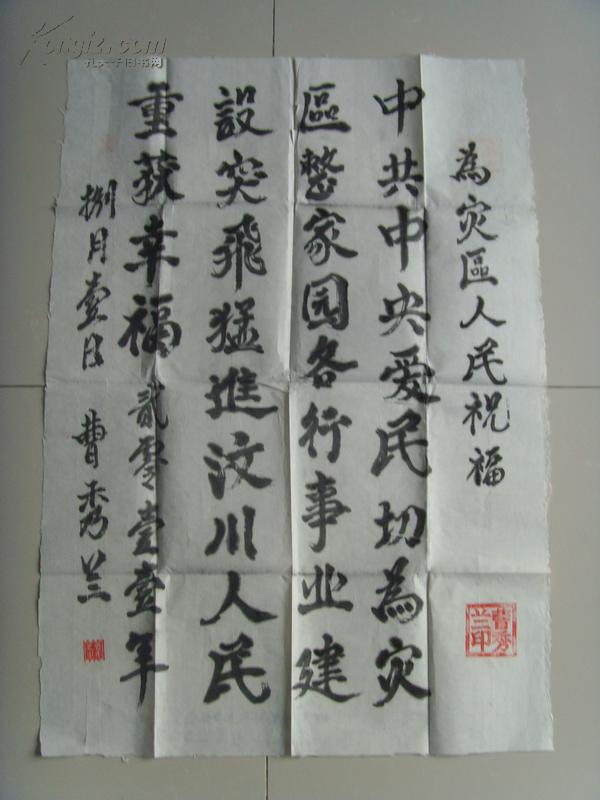 為灾區人民祝福
中共中央爱民切為灾
區整家园各行事业建
設突飛猛進汶川人民
重获幸福貳零壹壹年
捌月壹日 曹秀兰
曹秀兰印
Kongfz.com
孔夫子旧书网